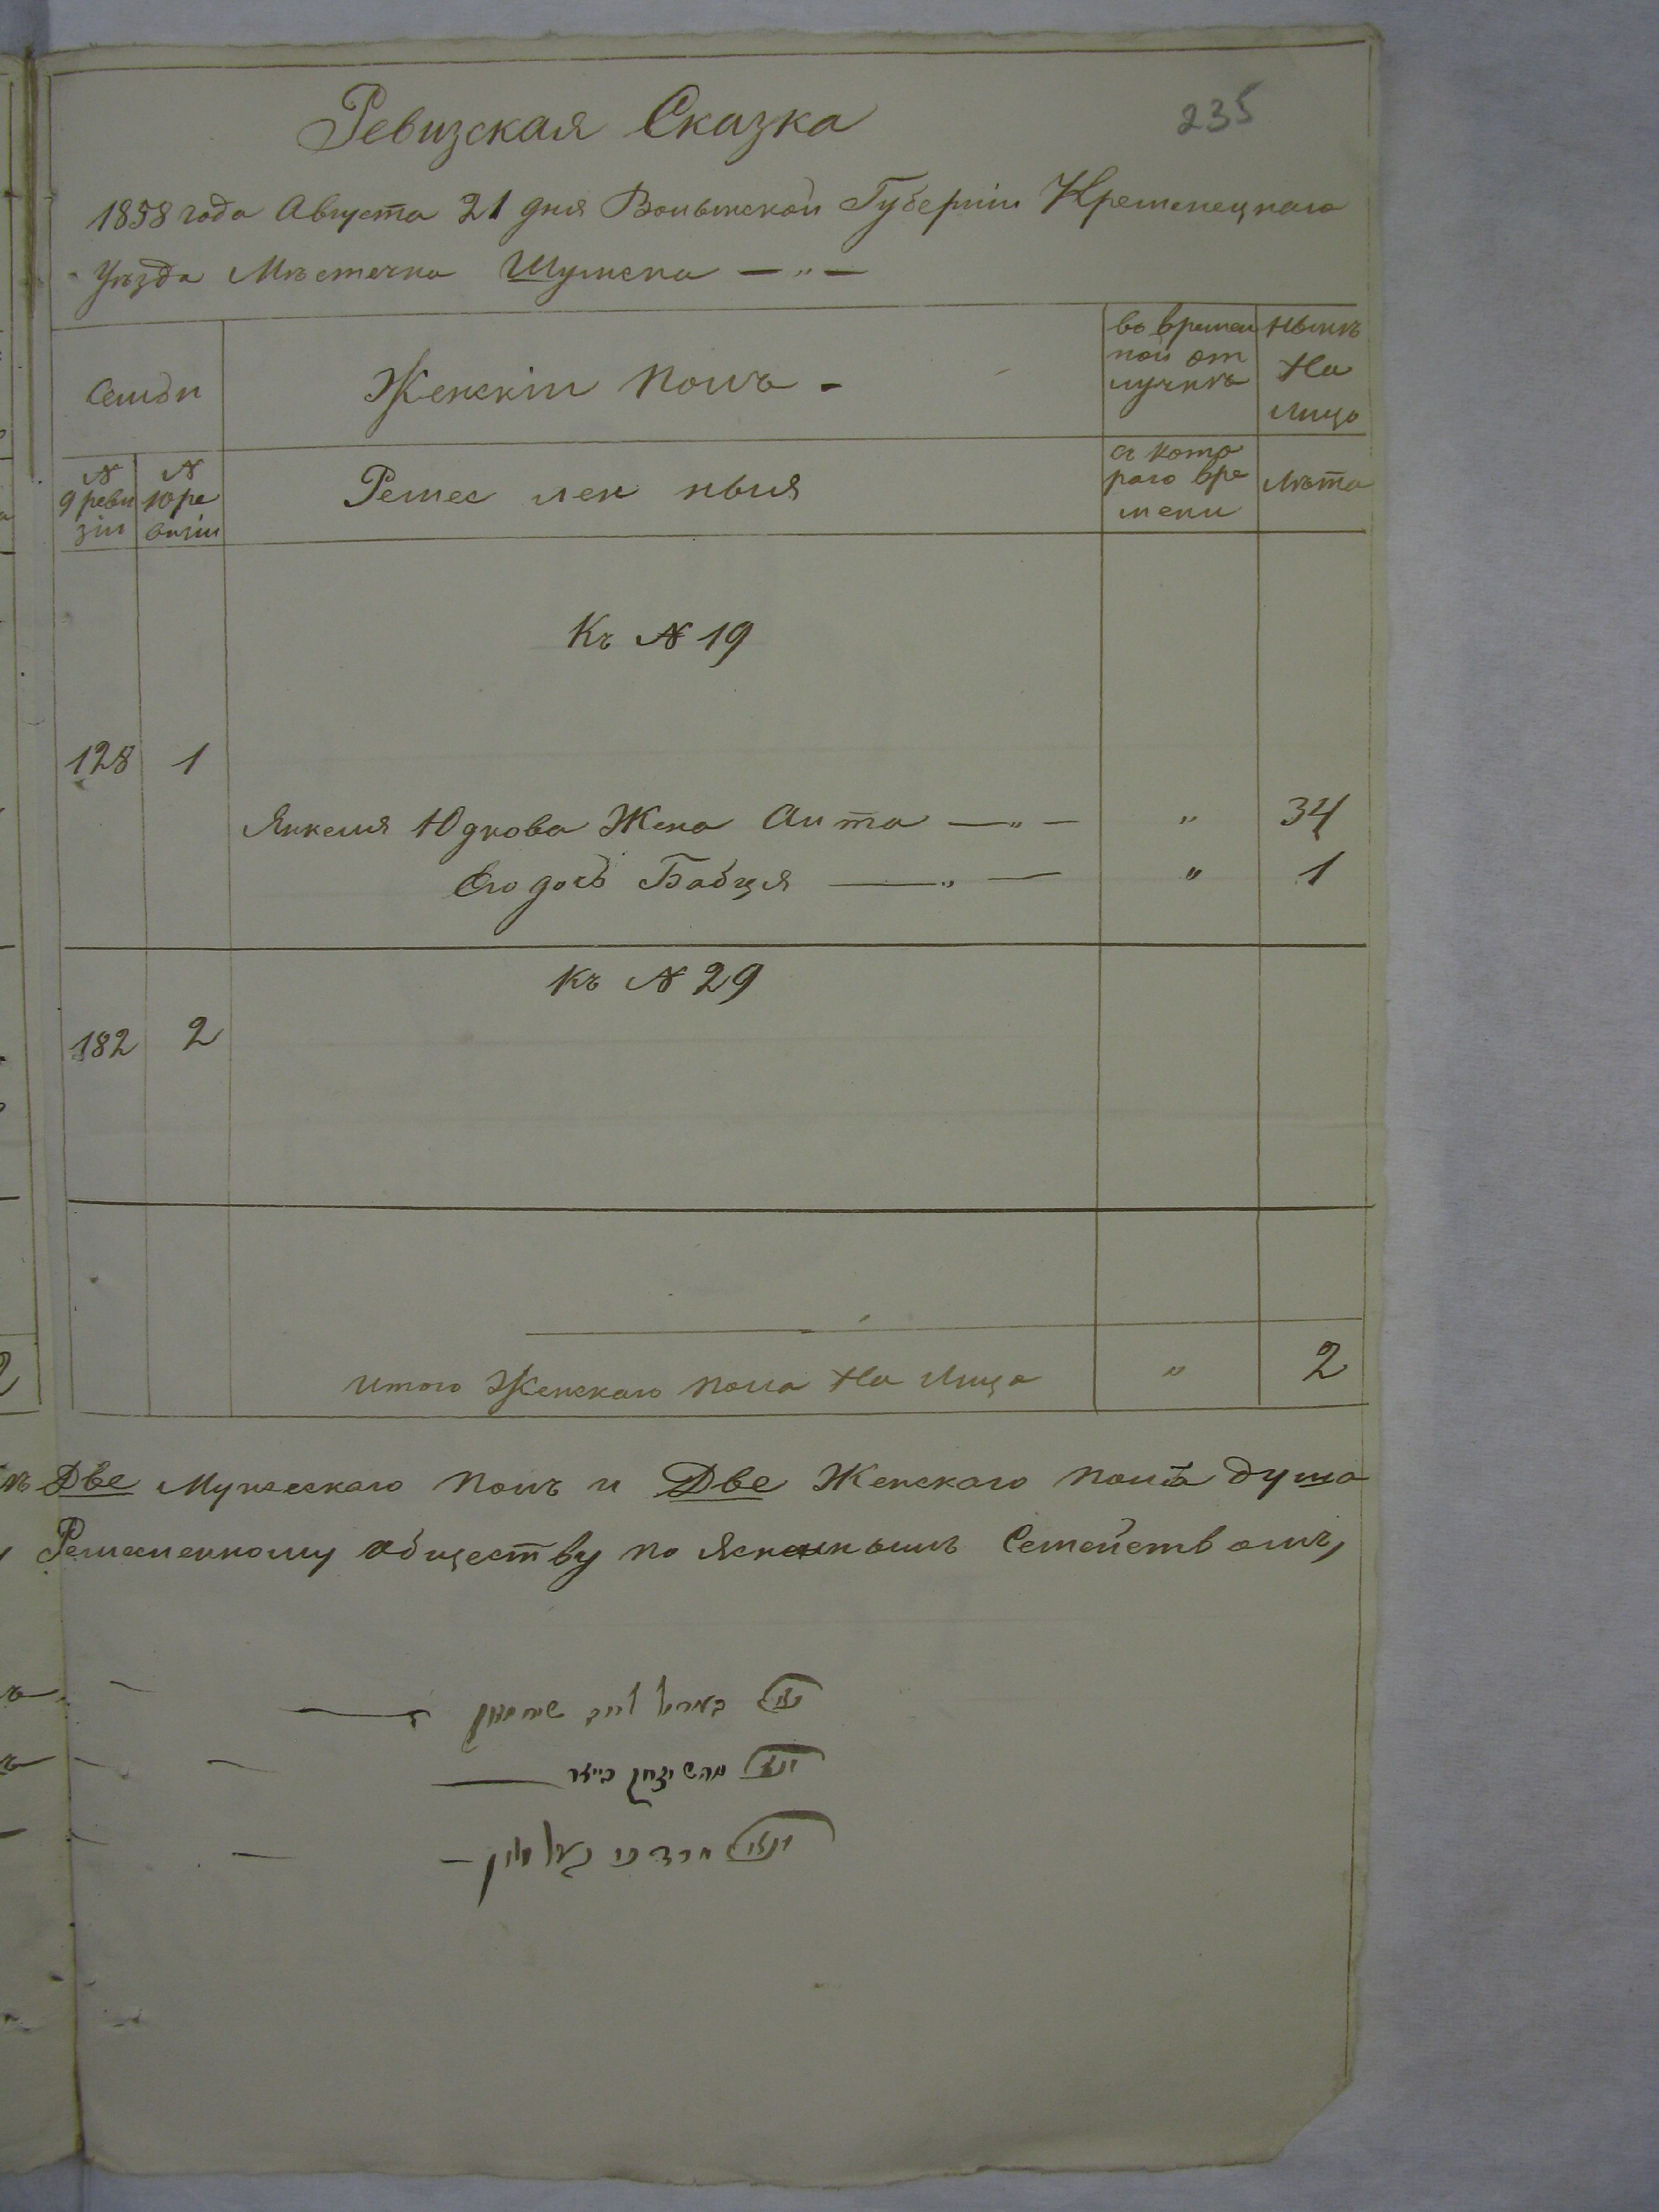 235
Ревизская Сказка
1858 года Августа 21 дня Волынской Губерніи Кременецкаго
Уѣзда Мѣстечка Шумска
Семьи
Женскій полъ
во времен
ной от
лучкѣ
нынѣ
На
лицо
N
9 реви
зіи
N
10 ре
визіи
Ремес лен ныя
съ кото
раго вре
мени
лѣта
Къ N 19
128 1
Янкеля Юдкова Жена Аита " 34
Его дочь Бабця " 1
Къ N 29
182 2
Итого Женскаго пола На лицо " 2
Две Мужескаго полъ и Две Женскаго пола душа
Ремесленному обществу по
Семействамъ,